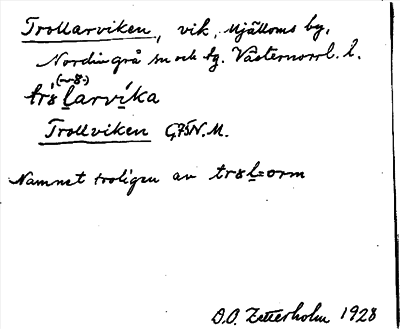 Trollarviken, vik, Mjälloms by,
Nordingrå sn och tg. Västernorrl. l.
(~8.)
tr8̀ḻarvíka
Trollviken G75N.M.
Namnet troligen av tr8ḻ-orm
D.O. Zetterholm 1928